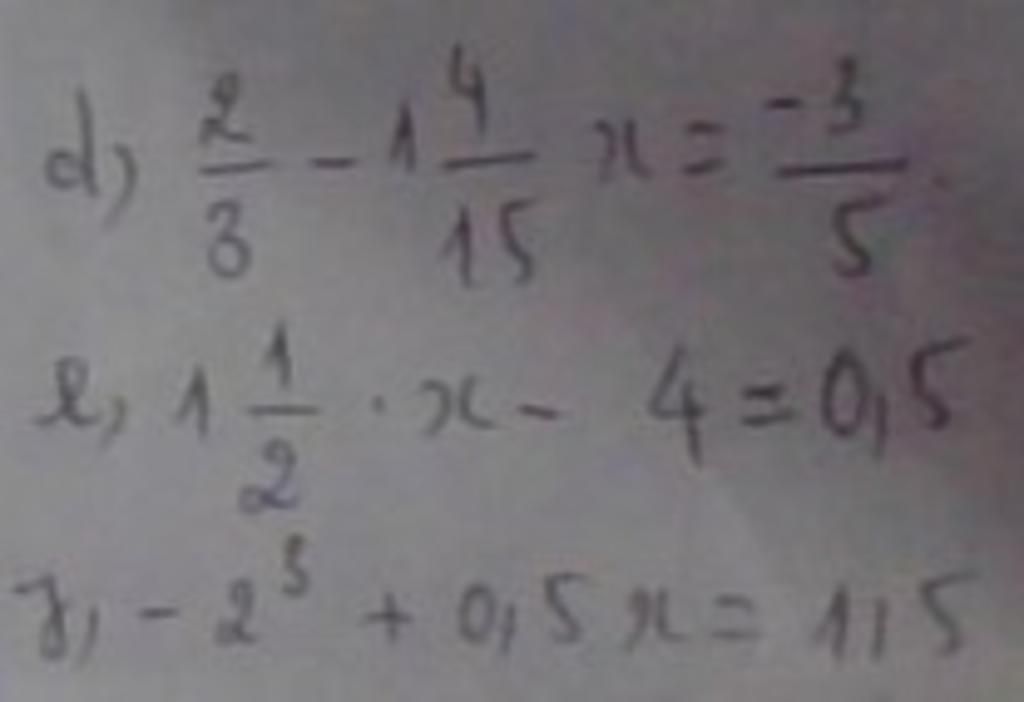 d, 2/3 - 1 4/15 x = -3/5.
e, 1 1/2 . x - 4 = 0,5
f, - 2³ + 0,5 x = 1,5